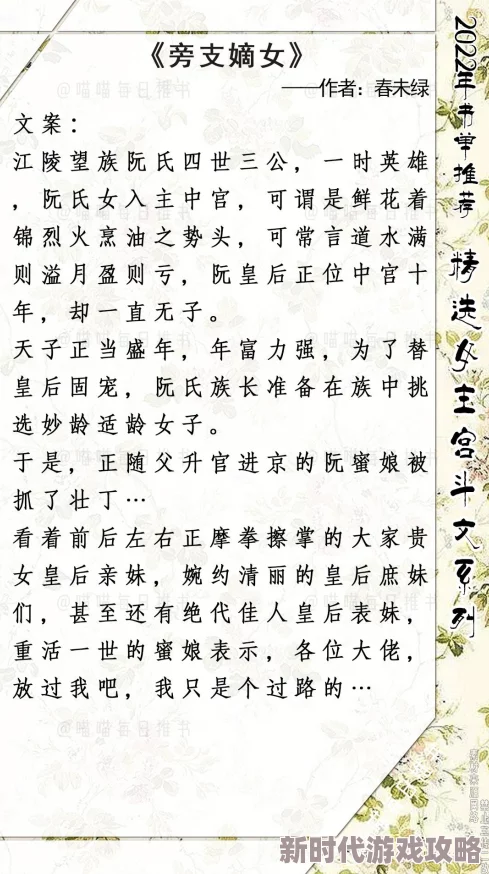 《旁支嫡女》
——作者：春未绿
文案：
江陵望族阮氏四世三公，一时英雄
，阮氏女入主中官，可谓是鲜花着
锦烈火烹油之势头，可常言道水满
则溢月盈则亏，阮皇后正位中宫十
年，却一直无子。
天子正当盛年，年富力强，为了替
皇后固宠，阮氏族长准备在族中挑
选妙龄适龄女子。
于是，正随父升官进京的阮蜜娘被
抓了壮丁…
看着前后左右正摩拳擦掌的大家贵
女皇后亲妹，婉约清丽的皇后庶妹
们，甚至还有绝代佳人皇后表妹，
重活一世的蜜娘表示，各位大佬，
放过我吧，我只是个过路的…
2022年书单推荐 精选女主宫斗文系列
@喵喵每日推书
新时代游戏攻略